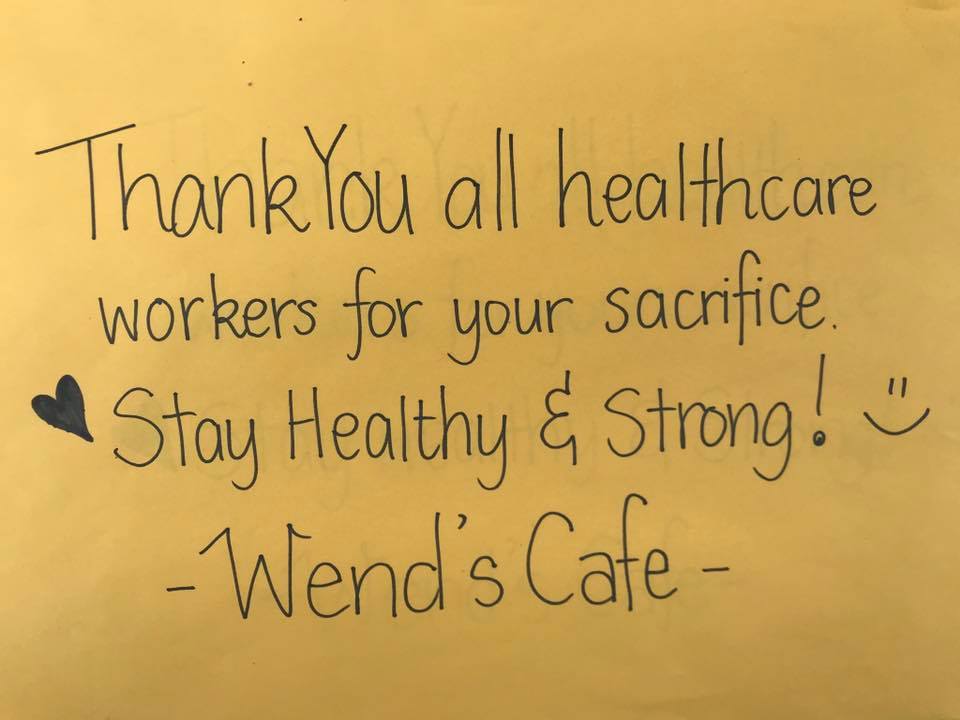 Thank You all healthcare
workers for your sacrifice.
Stay Healthy & Strong!
- Wend's Cafe -